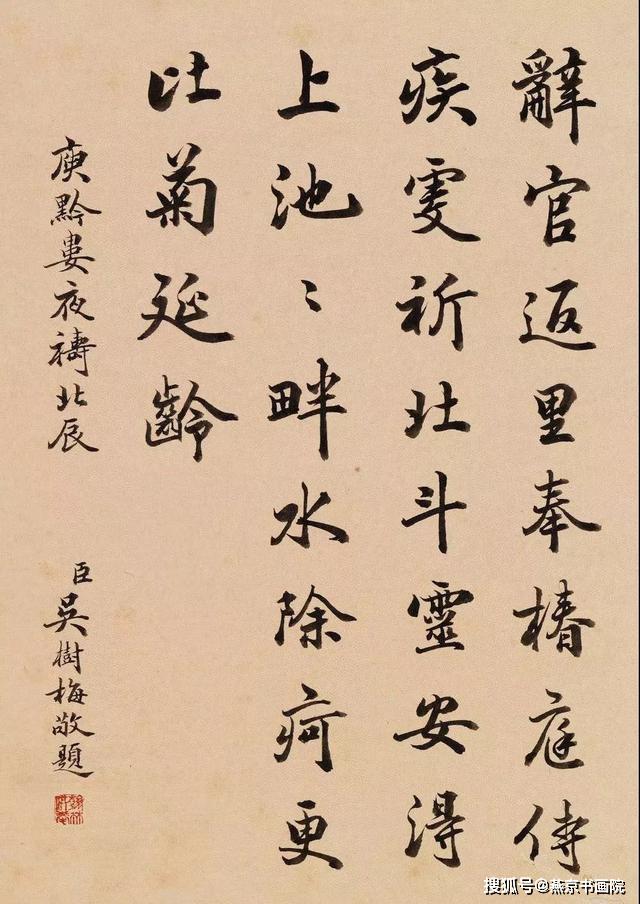 辭官返里奉椿庭侍
疾虔祈北斗靈安得
上池〻畔水除疴更
比菊延齡
庾黔婁夜禱北辰
臣吳樹梅敬題
搜狐号@燕京书画院